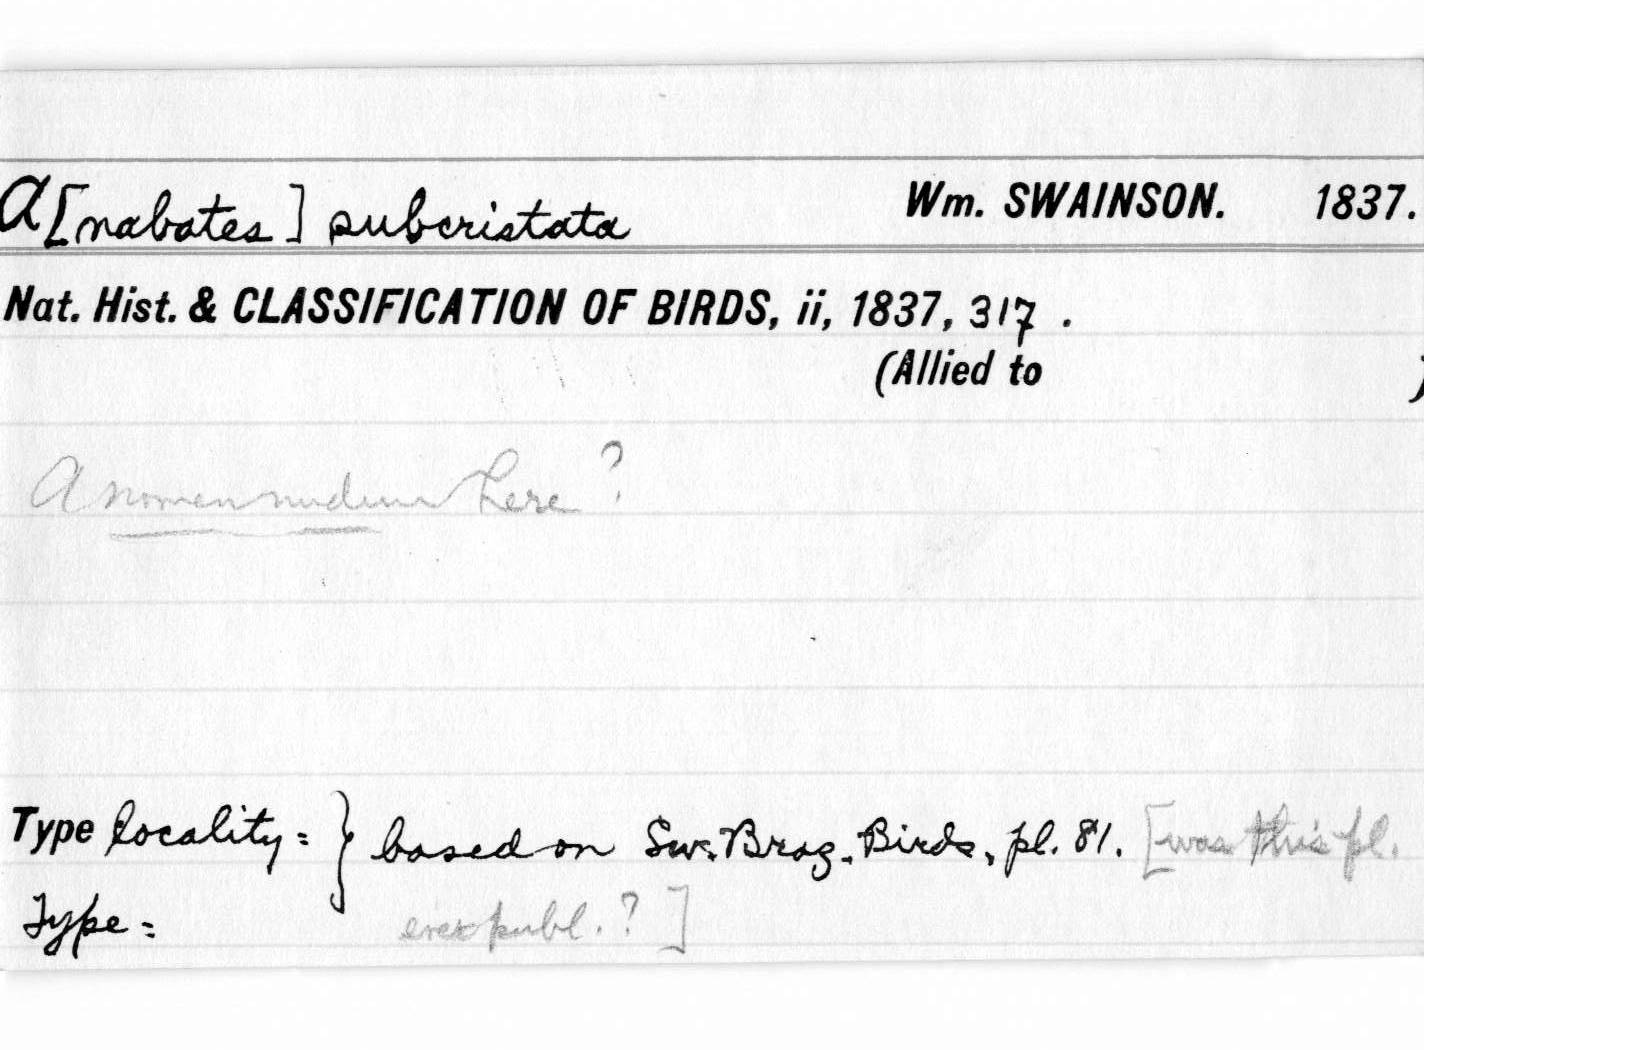 A[nabates] subcristata Wm. SWAINSON. 1837.
Nat. Hist. & CLASSIFICATION OF BIRDS, ii, 1837, 317 .
(Allied to )
A nomen nudum here ?
Type locality = } based on Sw. Braz. Birds, pl. 81. [was this pl.
Type = ever publ. ? ]